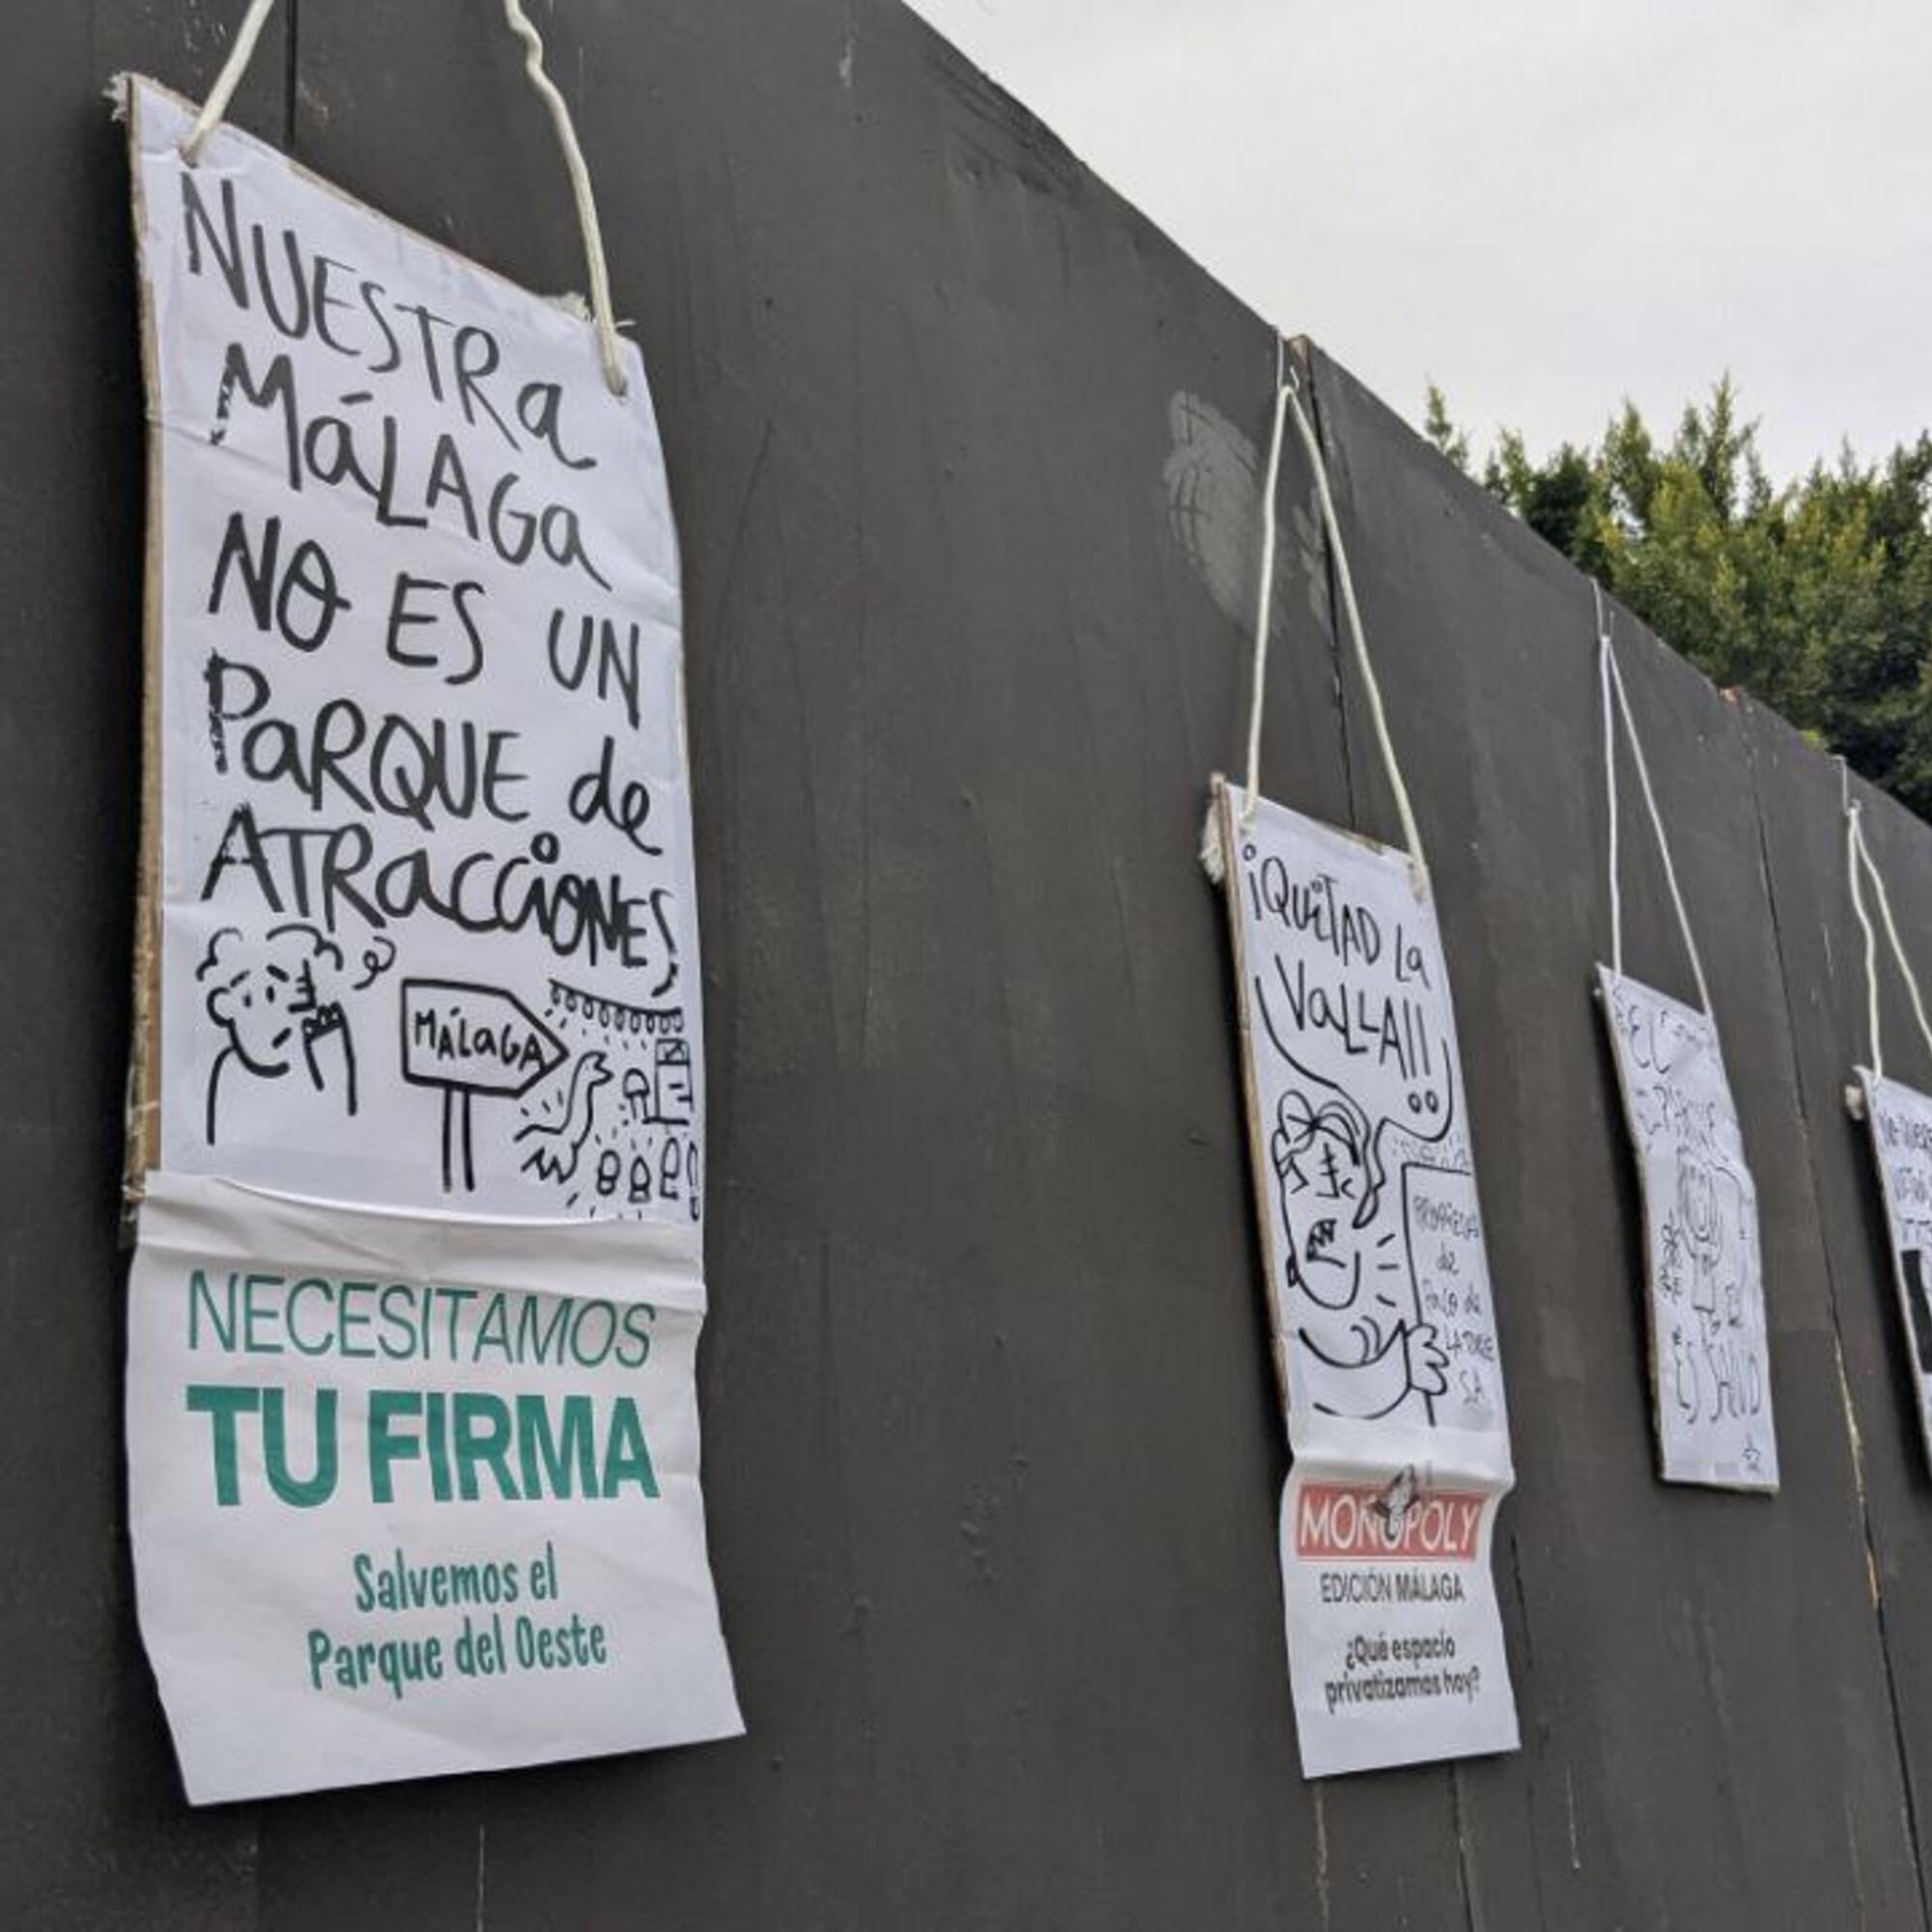 NUESTRa
MáLAGa
NO ES UN
PaRQUE de
ATRacciONES
MÁLaGA
NECESITAMOS
TU FIRMA
Salvemos el
Parque del Oeste
¡QUiTAD La
VaLLA!!
PROPIEDAD
de
Paco de
LA TORRE
S.A.
MONOPOLY
EDICIÓN MÁLAGA
¿Qué espacio
privatizamos hoy?
EL
PARQUE
ES SALUD